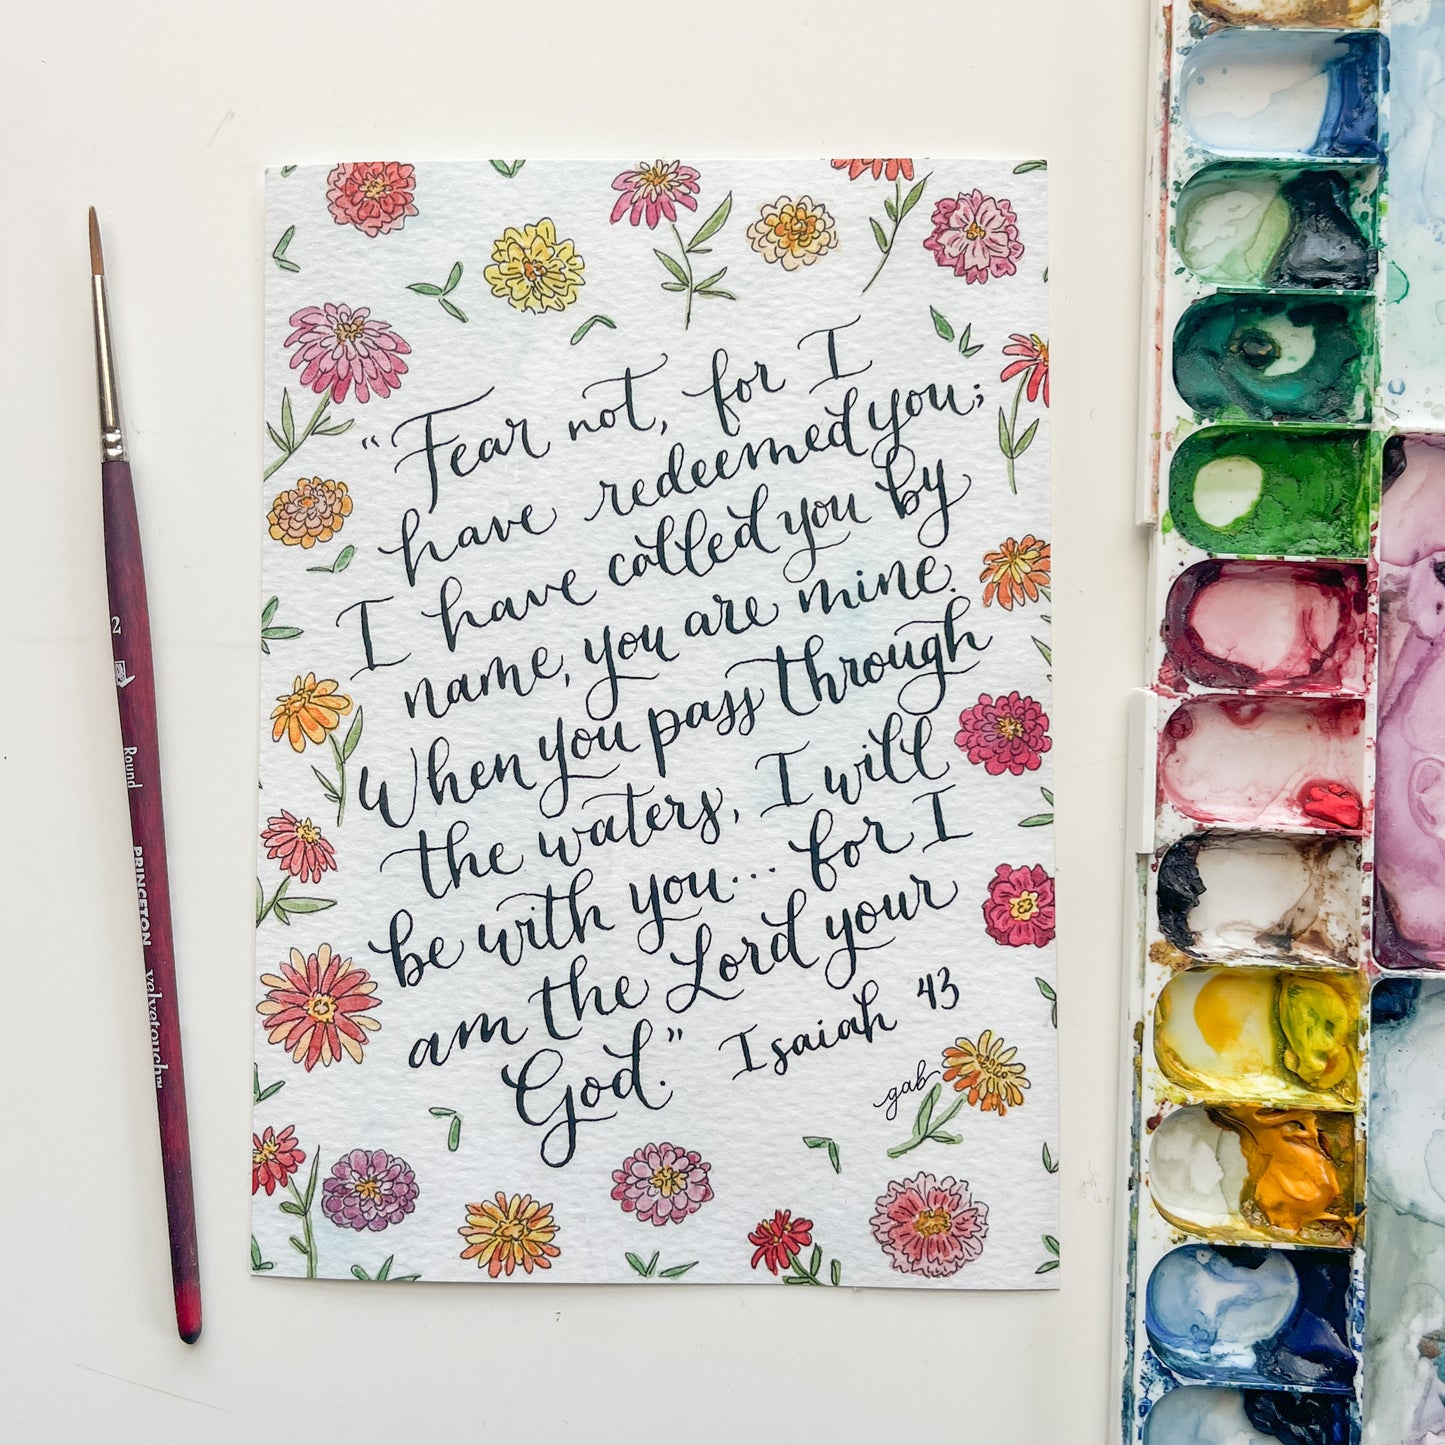 “Fear not, for I
have redeemed you;
I have called you by
name, you are mine.
When you pass through
the waters, I will
be with you... for I
am the Lord your
God.” Isaiah 43
gab
2
Round
PRINCETON
Velvetouch™